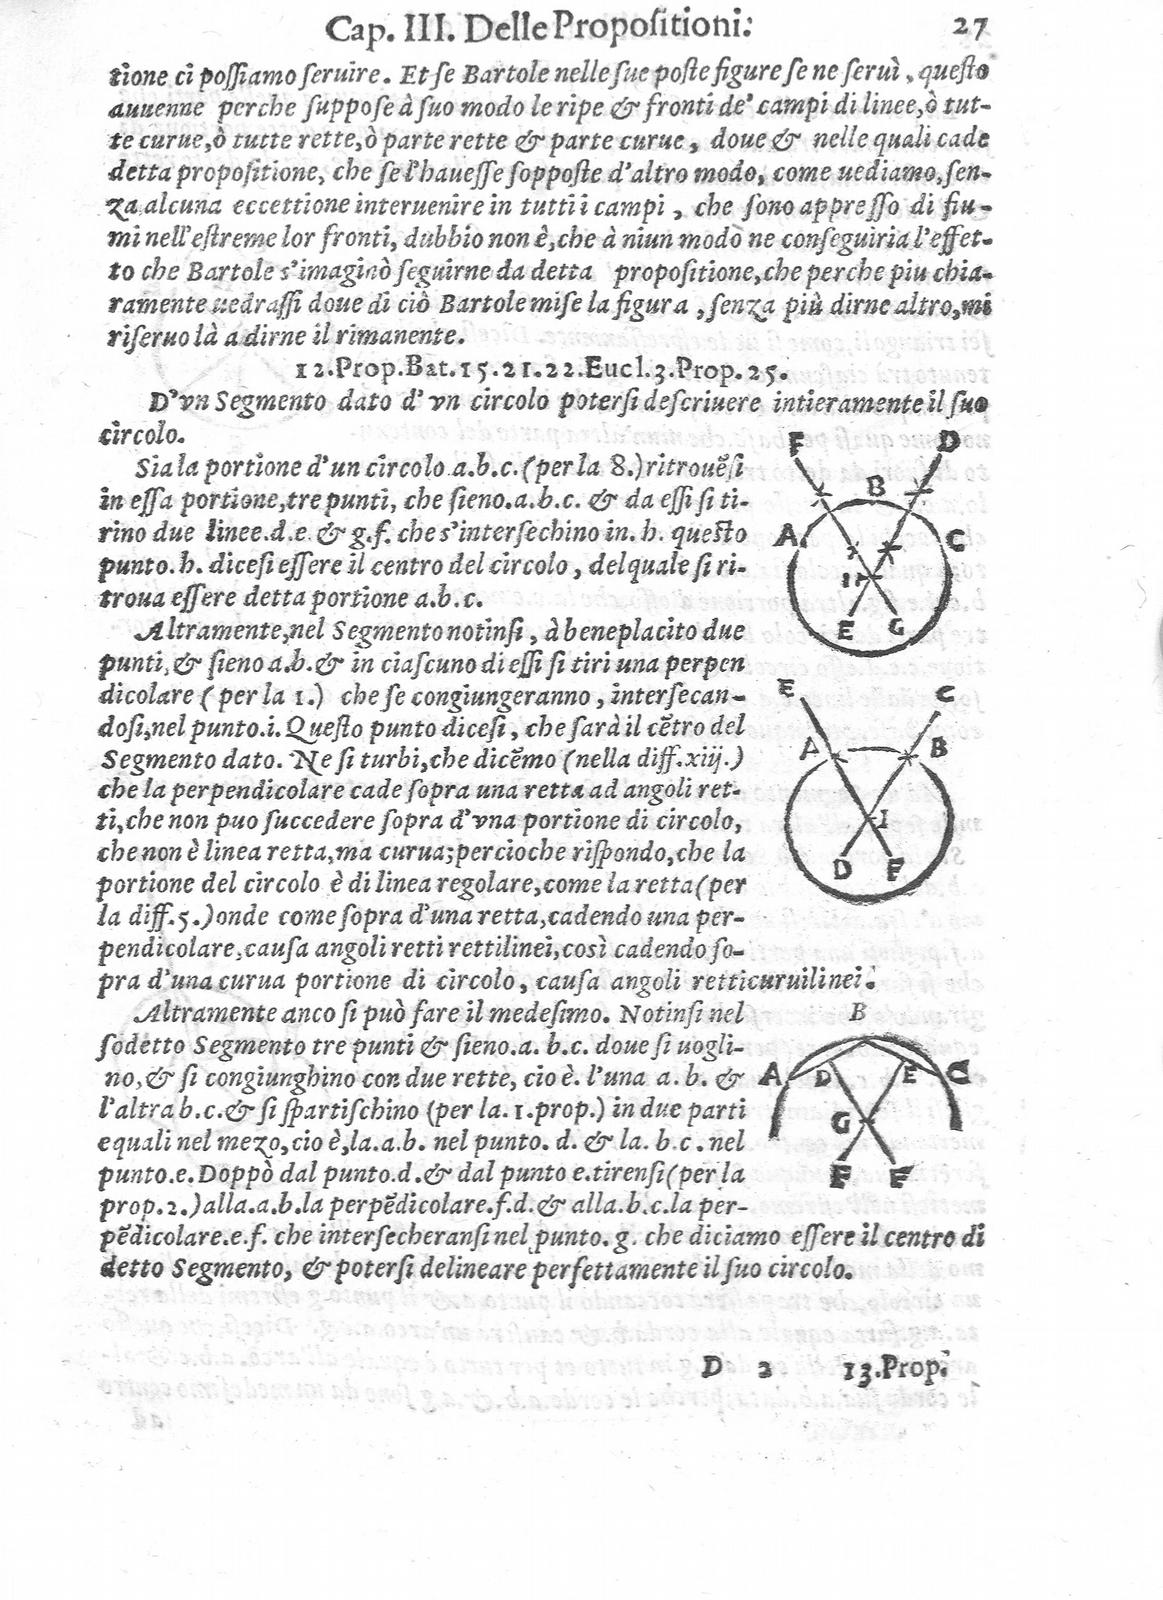 Cap. III. Delle Propoſitioni. 27
tione ci poſſiamo ſeruire. Et ſe Bartole nelle ſue poſte figure ſe ne ſeruì, queſto
auuenne perche ſuppoſe à ſuo modo le ripe & fronti de' campi di linee, ò tut-
te curue, ò tutte rette, ò parte rette & parte curue, doue & nelle quali cade
detta propoſitione, che ſe l'haueſſe ſoppoſte d'altro modo, come uediamo, ſen-
za alcuna eccettione interuenire in tutti i campi, che ſono appreſſo di fiu-
mi nell'eſtreme lor fronti, dubbio non è, che à niun modo ne conſeguiria l'effet-
to che Bartole s'imaginò ſeguirne da detta propoſitione, che perche piu chia-
ramente uedraſſi doue di ciò Bartole miſe la figura, ſenza più dirne altro, mi
riſeruo là a dirne il rimanente.
12.Prop.Bat.15.21.22.Eucl.3.Prop.25.
D'vn Segmento dato d'vn circolo poterſi deſcriuere intieramente il ſuo
circolo.
Sia la portione d'un circolo a.b.c. (per la 8.) ritrouẽſi
in eſſa portione, tre punti, che ſieno.a.b.c. & da eſſi ſi ti-
rino due linee.d.e. & g.f. che s'interſechino in. h. queſto
punto.h. diceſi eſſere il centro del circolo, del quale ſi ri-
troua eſſere detta portione a.b.c.
Altramente, nel Segmento notinſi, à beneplacito due
punti, & ſieno a.b.& in ciaſcuno di eſſi ſi tiri una perpen
dicolare (per la 1.) che ſe congiungeranno, interſecan-
doſi, nel punto.i. Queſto punto diceſi, che ſarà il cẽtro del
Segmento dato. Ne ſi turbi, che dicẽmo (nella diff.xiij.)
che la perpendicolare cade ſopra una retta ad angoli ret-
ti, che non puo ſuccedere ſopra d'vna portione di circolo,
che non è linea retta, ma curua; percioche riſpondo, che la
portione del circolo è di linea regolare, come la retta (per
la diff.5.) onde come ſopra d'una retta, cadendo una per-
pendicolare, cauſa angoli retti rettilinei, così cadendo ſo-
pra d'una curua portione di circolo, cauſa angoli retti curuilinei.
Altramente anco ſi può fare il medeſimo. Notinſi nel
ſodetto Segmento tre punti & ſieno.a. b.c. doue ſi uogli-
no, & ſi congiunghino con due rette, cio è. l'una a. b. &
l'altra b.c.& ſi ſpartiſchino (per la. 1.prop.) in due parti
equali nel mezo, cio è, la.a.b. nel punto. d. & la. b.c. nel
punto.e. Doppò dal punto.d.& dal punto e.tirenſi (per la
prop.2.) alla.a.b.la perpẽdicolare.f.d.& alla.b.c.la per-
pẽdicolare.e.f. che interſecheranſi nel punto. g. che diciamo eſſere il centro di
detto Segmento, & poterſi delineare perfettamente il ſuo circolo.
F D
B
A C
H
E G
E C
A B
I
D F
B
A D E C
G
F F
D 2 13.Prop.